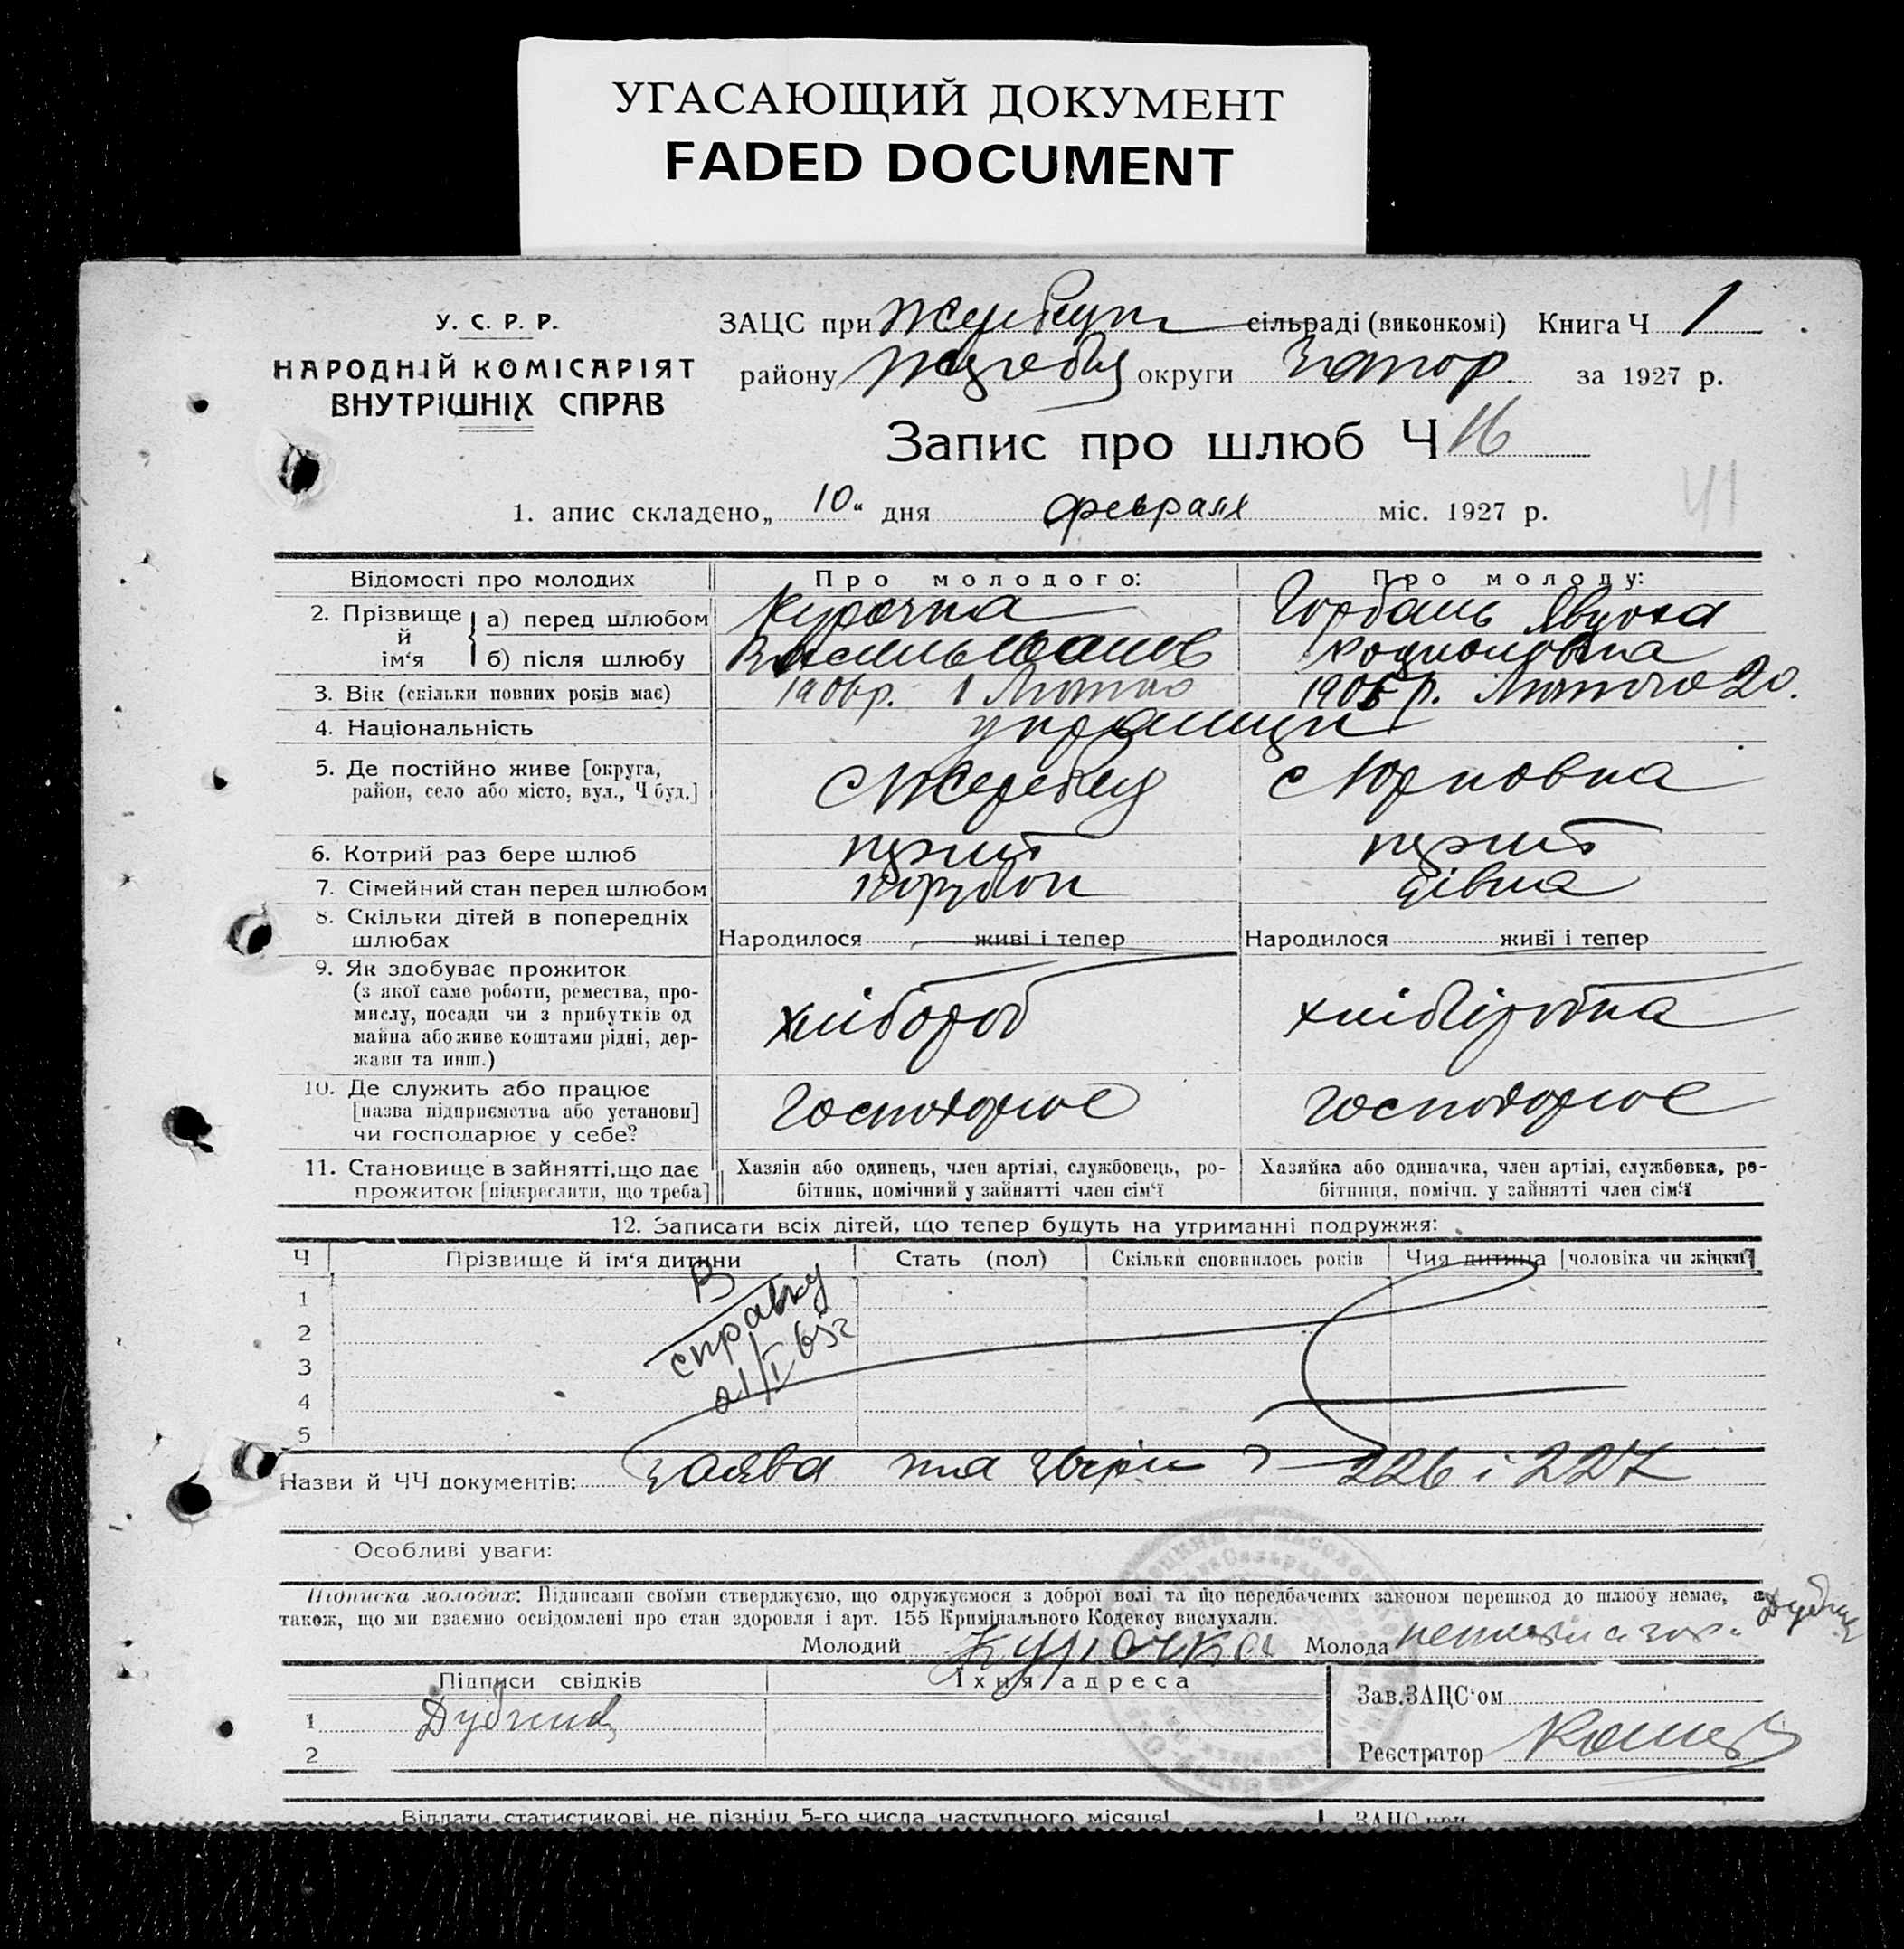 УГАСАЮЩИЙ ДОКУМЕНТ
FADED DOCUMENT
У. С. Р. Р.
НАРОДНІЙ КОМІСАРІЯТ
ВНУТРІШНІХ СПРАВ
ЗАЦС при сільраді (виконкомі) Книга Ч 1
району округи Запор. за 1927 р.
Запис про шлюб Ч 16
41
1. апис складено „ 10 “ дня февраля міс. 1927 р.
Відомості про молодих Про молодого: Про молоду:
2. Прізвище й ім‘я
а) перед шлюбом Курочка Горбань Явдоха
б) після шлюбу Василь Иванов Родионовна
3. Вік (скільки повних років має) 1906 р. 1 Лютого 1905 р. Лютого 20.
4. Національність українци
5. Де постійно живе [округа, район, село або місто, вул., Ч буд.] с Жеребец с Юрковка
6. Котрий раз бере шлюб перший перший
7. Сімейний стан перед шлюбом парубок дівка
8. Скільки дітей в попередніх шлюбах Народилося живі і тепер Народилося живі і тепер
9. Як здобуває прожиток
(з якої саме роботи, ремества, про-
мислу, посади чи з прибутків од
майна або живе коштами рідні, дер-
жави та инш.)
хлібороб хліборобка
10. Де служить або працює
[назва підприємства або установи]
чи господарює у себе?
Господарює господарює
11. Становище в зайнятті, що дає
прожиток [підкреслити, що треба]
Хазяін або одинець, член артілі, службовець, ро-
бітник, помічний у зайнятті член сім‘ї
Хазяйка або одиначка, член артілі, службовка, ро-
бітниця, помічн. у зайнятті член сім‘ї
12. Записати всіх дітей, що тепер будуть на утриманні подружжя:
Ч Прізвище й ім‘я дитини Стать (пол) Скільки сповнилось років Чия дитина [чоловіка чи жінки]
1
2
3
4
5
В
справку
21/I 65г
Назви й ЧЧ документів: заява та 226 і 227
Особливі уваги:
Підписка молодих: Підписами своїми стверджуємо, що одружуємося з доброї волі та що передбачених законом перешкод до шлюбу немає, а
також, що ми взаємно освідомлені про стан здоровля і арт. 155 Кримінального Кодексу вислухали.
Молодий Курочка Молода
Підписи свідків Їхня адреса
1
2
Зав. ЗАЦС‘ом
Реєстратор
Віддати статистикові не пізніш 5-го числа наступного місяця!
ЗАЦС при